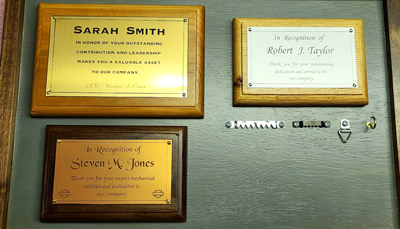 SARAH SMITH
IN HONOR OF YOUR OUTSTANDING
CONTRIBUTION AND LEADERSHIP
MAKES YOU A VALUABLE ASSET
TO OUR COMPANY.
In Recognition of
Robert J. Taylor
Thank you for your outstanding
dedication and service with
our company.
In Recognition of
Steven M. Jones
Thank you for your expert mechanical
abilities and dedication to
our company.